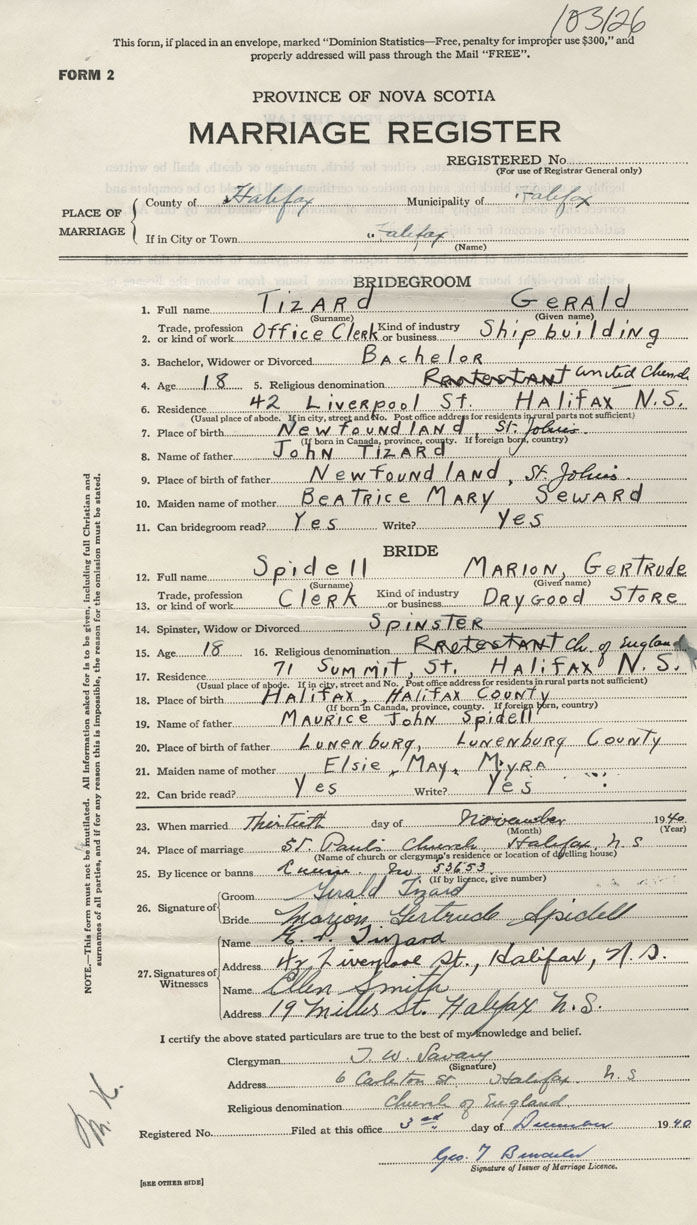 103126
This form, if placed in an envelope, marked "Dominion Statistics—Free, penalty for improper use $300," and
properly addressed will pass through the Mail "FREE".
FORM 2
PROVINCE OF NOVA SCOTIA
MARRIAGE REGISTER
REGISTERED No.
(For use of Registrar General only)
PLACE OF MARRIAGE
County of Halifax Municipality of Halifax
If in City or Town Halifax
(Name)
BRIDEGROOM
1. Full name Tizard Gerald
(Surname) (Given name)
2. Trade, profession or kind of work Office Clerk Kind of industry or business Shipbuilding
3. Bachelor, Widower or Divorced Bachelor
4. Age 18 5. Religious denomination Protestant United Church
6. Residence 42 Liverpool St. Halifax N.S.
(Usual place of abode. If in city, street and No. Post office address for residents in rural parts not sufficient)
7. Place of birth Newfoundland, St. Johns.
(If born in Canada, province, county. If foreign born, country)
8. Name of father John Tizard
9. Place of birth of father Newfoundland, St. Johns.
10. Maiden name of mother Beatrice Mary Seward
11. Can bridegroom read? Yes Write? Yes
BRIDE
12. Full name Spidell Marion, Gertrude
(Surname) (Given name)
13. Trade, profession or kind of work Clerk Kind of industry or business Drygood Store
14. Spinster, Widow or Divorced Spinster
15. Age 18 16. Religious denomination Protestant Ch. of England
17. Residence 71 Summit, St. Halifax N.S.
(Usual place of abode. If in city, street and No. Post office address for residents in rural parts not sufficient)
18. Place of birth Halifax, Halifax County
(If born in Canada, province, county. If foreign born, country)
19. Name of father Maurice John Spidell
20. Place of birth of father Lunenburg, Lunenburg County
21. Maiden name of mother Elsie, May, Myra
22. Can bride read? Yes Write? Yes
23. When married Thirtieth day of November 1940
(Month) (Year)
24. Place of marriage St. Paul's Church Halifax, N S
(Name of church or clergyman's residence or location of dwelling house)
25. By licence or banns License No 53653
(If by licence, give number)
26. Signature of
Groom Gerald Tizard
Bride Marion Gertrude Spidell
27. Signatures of Witnesses
Name Tizard
Address 42 Liverpool St., Halifax, N.S.
Name Ellen Smith
Address 19 Miller St. Halifax N.S.
I certify the above stated particulars are true to the best of my knowledge and belief.
Clergyman T. W. Savary
(Signature)
Address 6 Carleton St Halifax N S
Religious denomination Church of England
Registered No. Filed at this office 3rd day of December 1940
Geo. T
Signature of Issuer of Marriage Licence.
[SEE OTHER SIDE]
NOTE.—This form must not be mutilated. All information asked for is to be given, including full Christian and
surnames of all parties, and if for any reason this is impossible, the reason for the omission must be stated.